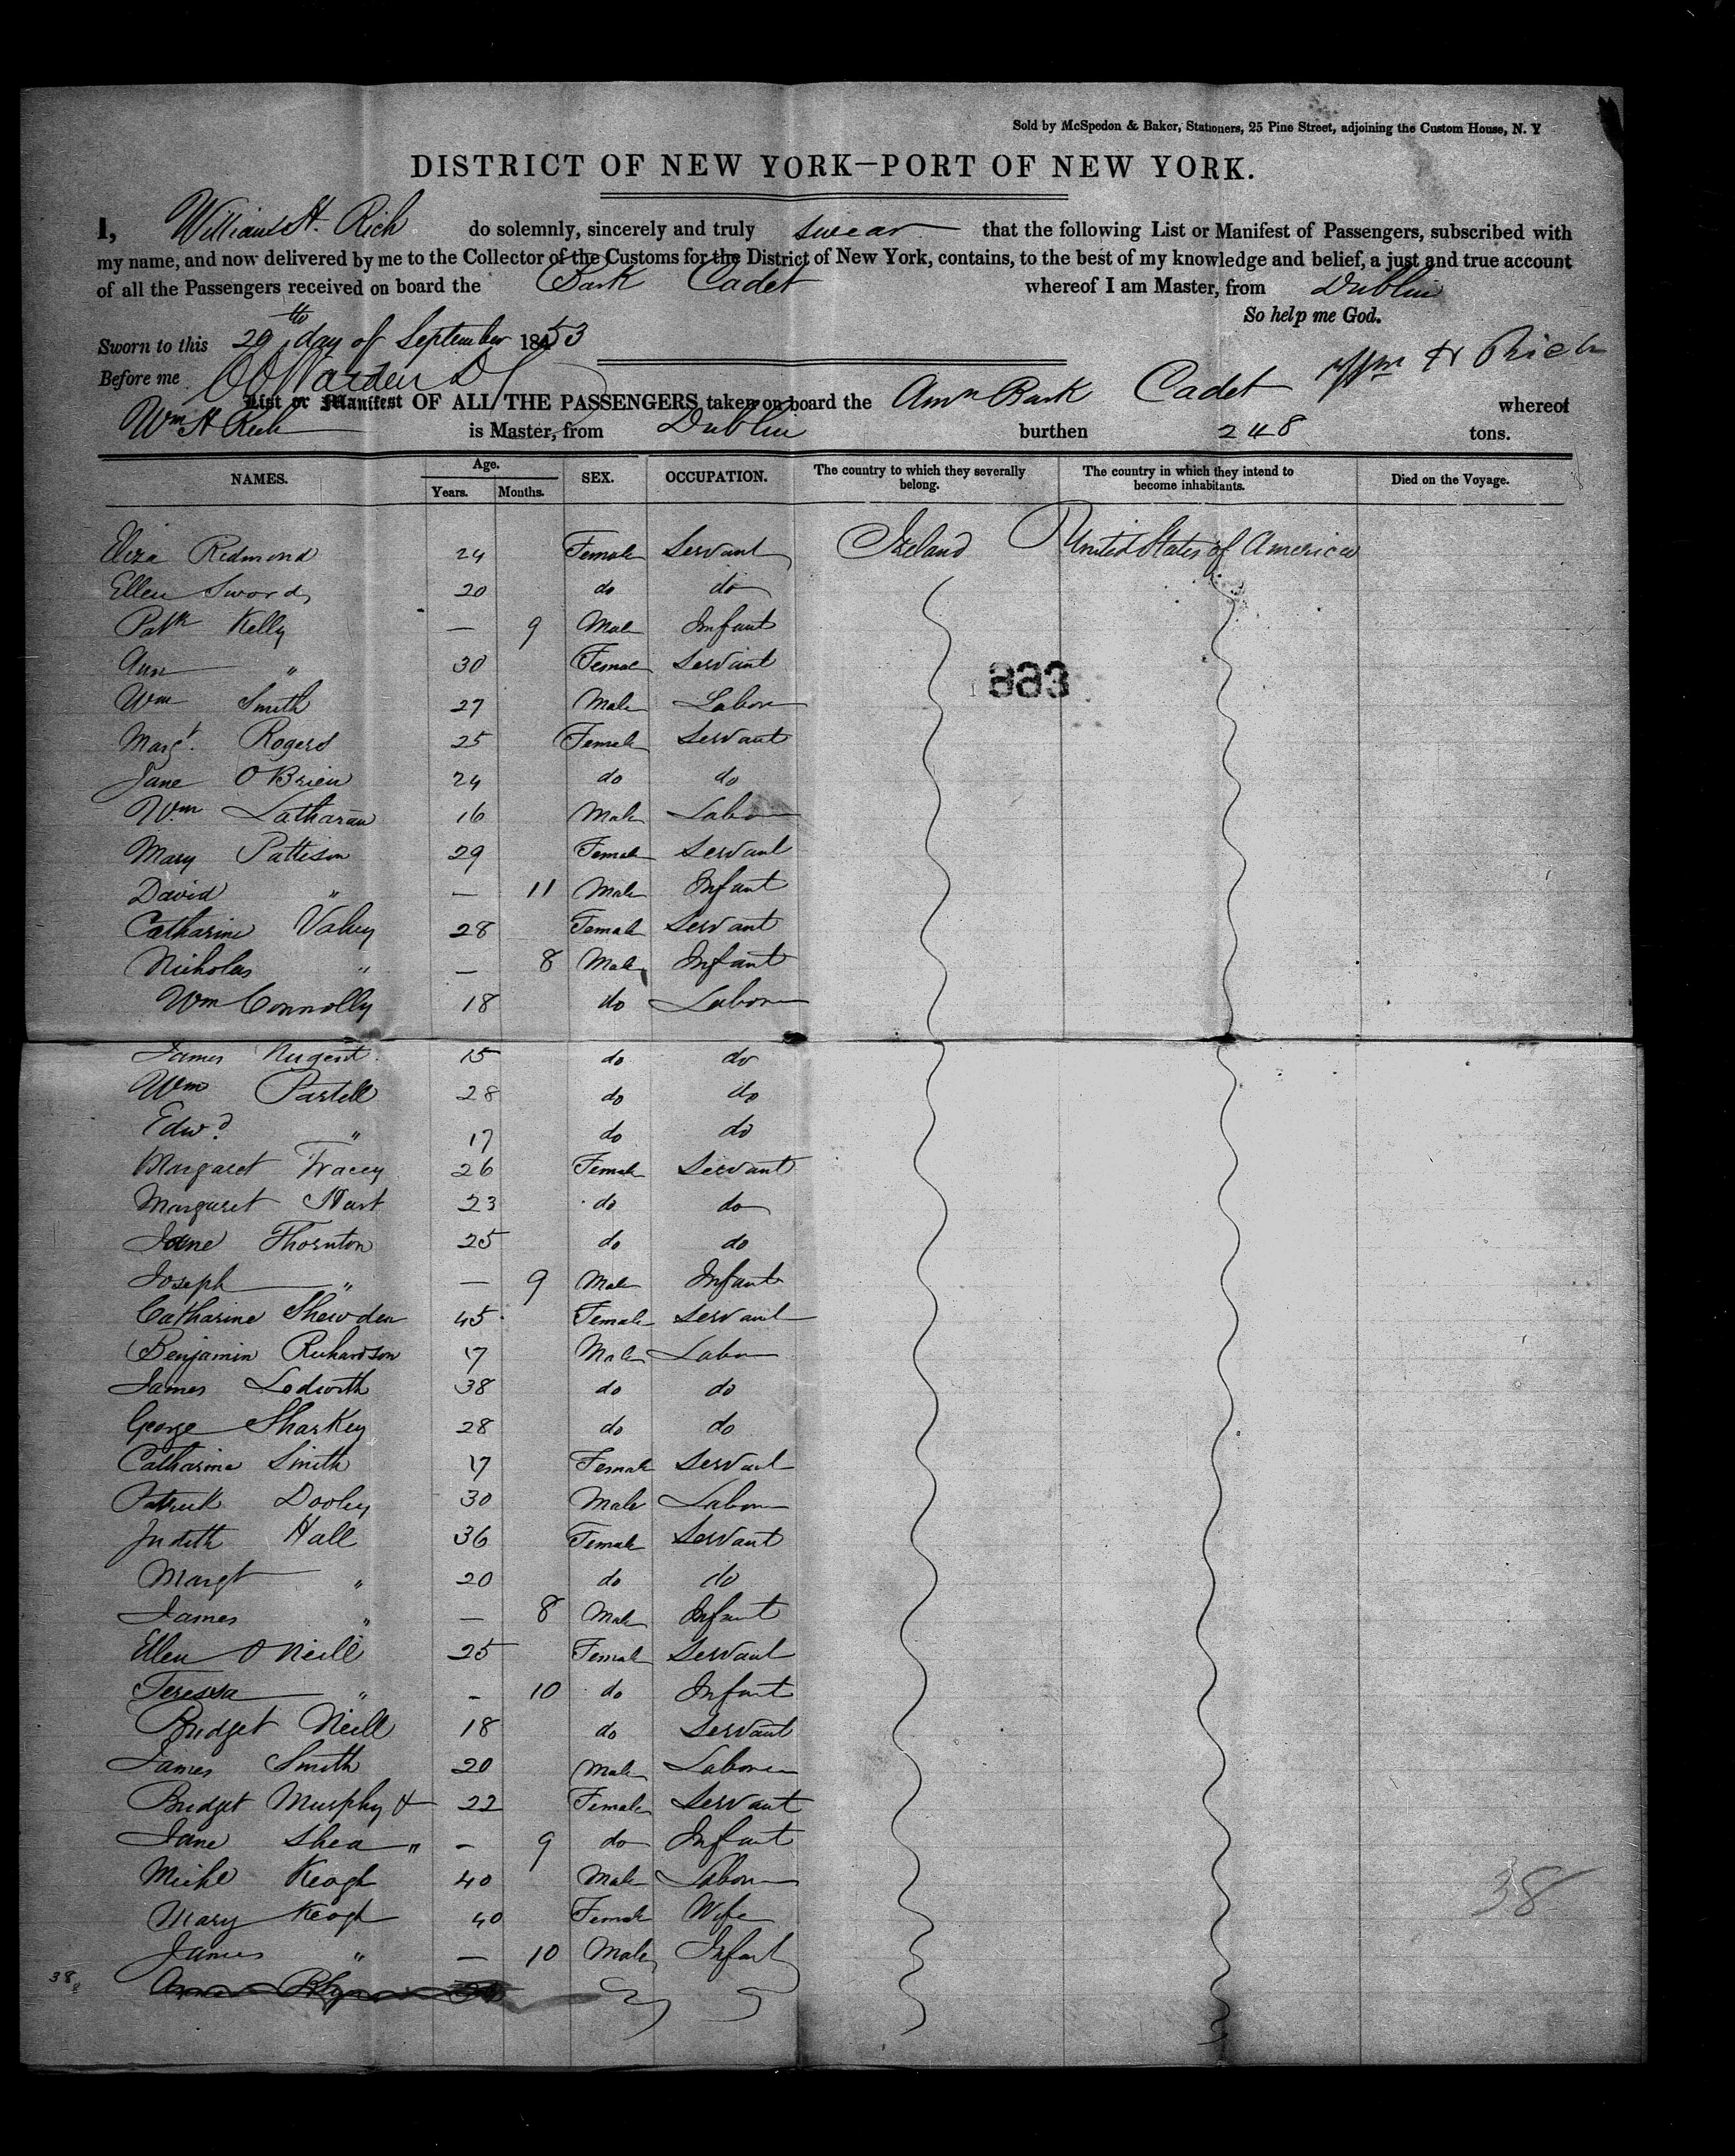 Sold by McSpedon & Baker, Stationers, 25 Pine Street, adjoining the Custom House, N. Y
DISTRICT OF NEW YORK—PORT OF NEW YORK.
I, William H. Rich do solemnly, sincerely and truly swear that the following List or Manifest of Passengers, subscribed with
my name, and now delivered by me to the Collector of the Customs for the District of New York, contains, to the best of my knowledge and belief, a just and true account
of all the Passengers received on board the Bark Cadet whereof I am Master, from Dublin
So help me God.
Sworn to this 29th day of September 1853
Wm H Rich
Before me
List or Manifest OF ALL THE PASSENGERS taken on board the Amn Bark Cadet whereof
Wm H Rich is Master, from Dublin burthen 248 tons.
NAMES. Age. Years. Months. SEX. OCCUPATION. The country to which they severally belong. The country in which they intend to become inhabitants. Died on the Voyage.
Eliza Redmond 24 Female Servant Ireland United States of America
Ellen Swords 20 do do
Patk Kelly — 9 Male Infant
Ann " 30 Female Servant
893
Wm Smith 27 Male Labor
Margt. Rogers 25 Female Servant
Jane O'Brien 24 do do
Wm Latharan 16 Male Labor
Mary Pattison 29 Female Servant
David " — 11 Male Infant
Catharine Vahey 28 Female Servant
Nicholas " — 8 Male Infant
Wm Connolly 18 do Labor
James Nugent 15 do do
Wm Partell 28 do do
Edwd " 17 do do
Margaret Tracey 26 Female Servant
Margaret Hart 23 do do
Jane Thornton 25 do do
Joseph " — 9 Male Infant
Catharine Shewden 45 Female Servant
Benjamin Richardson 17 Male Labor
James Lodwith 38 do do
George Sharkey 28 do do
Catharine Smith 17 Female Servant
Patrick Dooley 30 Male Labor
Judith Hall 36 Female Servant
Margt " 20 do do
James " — 8 Male Infant
Ellen O Neill 25 Female Servant
Teressa " - 10 do Infant
Bridget Neill 18 do Servant
James Smith 20 Male Laborer
Bridget Murphy & 22 Female Servant
Jane Shea " - 9 do Infant
Michl Keogh 40 Male Labor
Mary Keogh 40 Female Wife
38
James " — 10 Male Infant
38